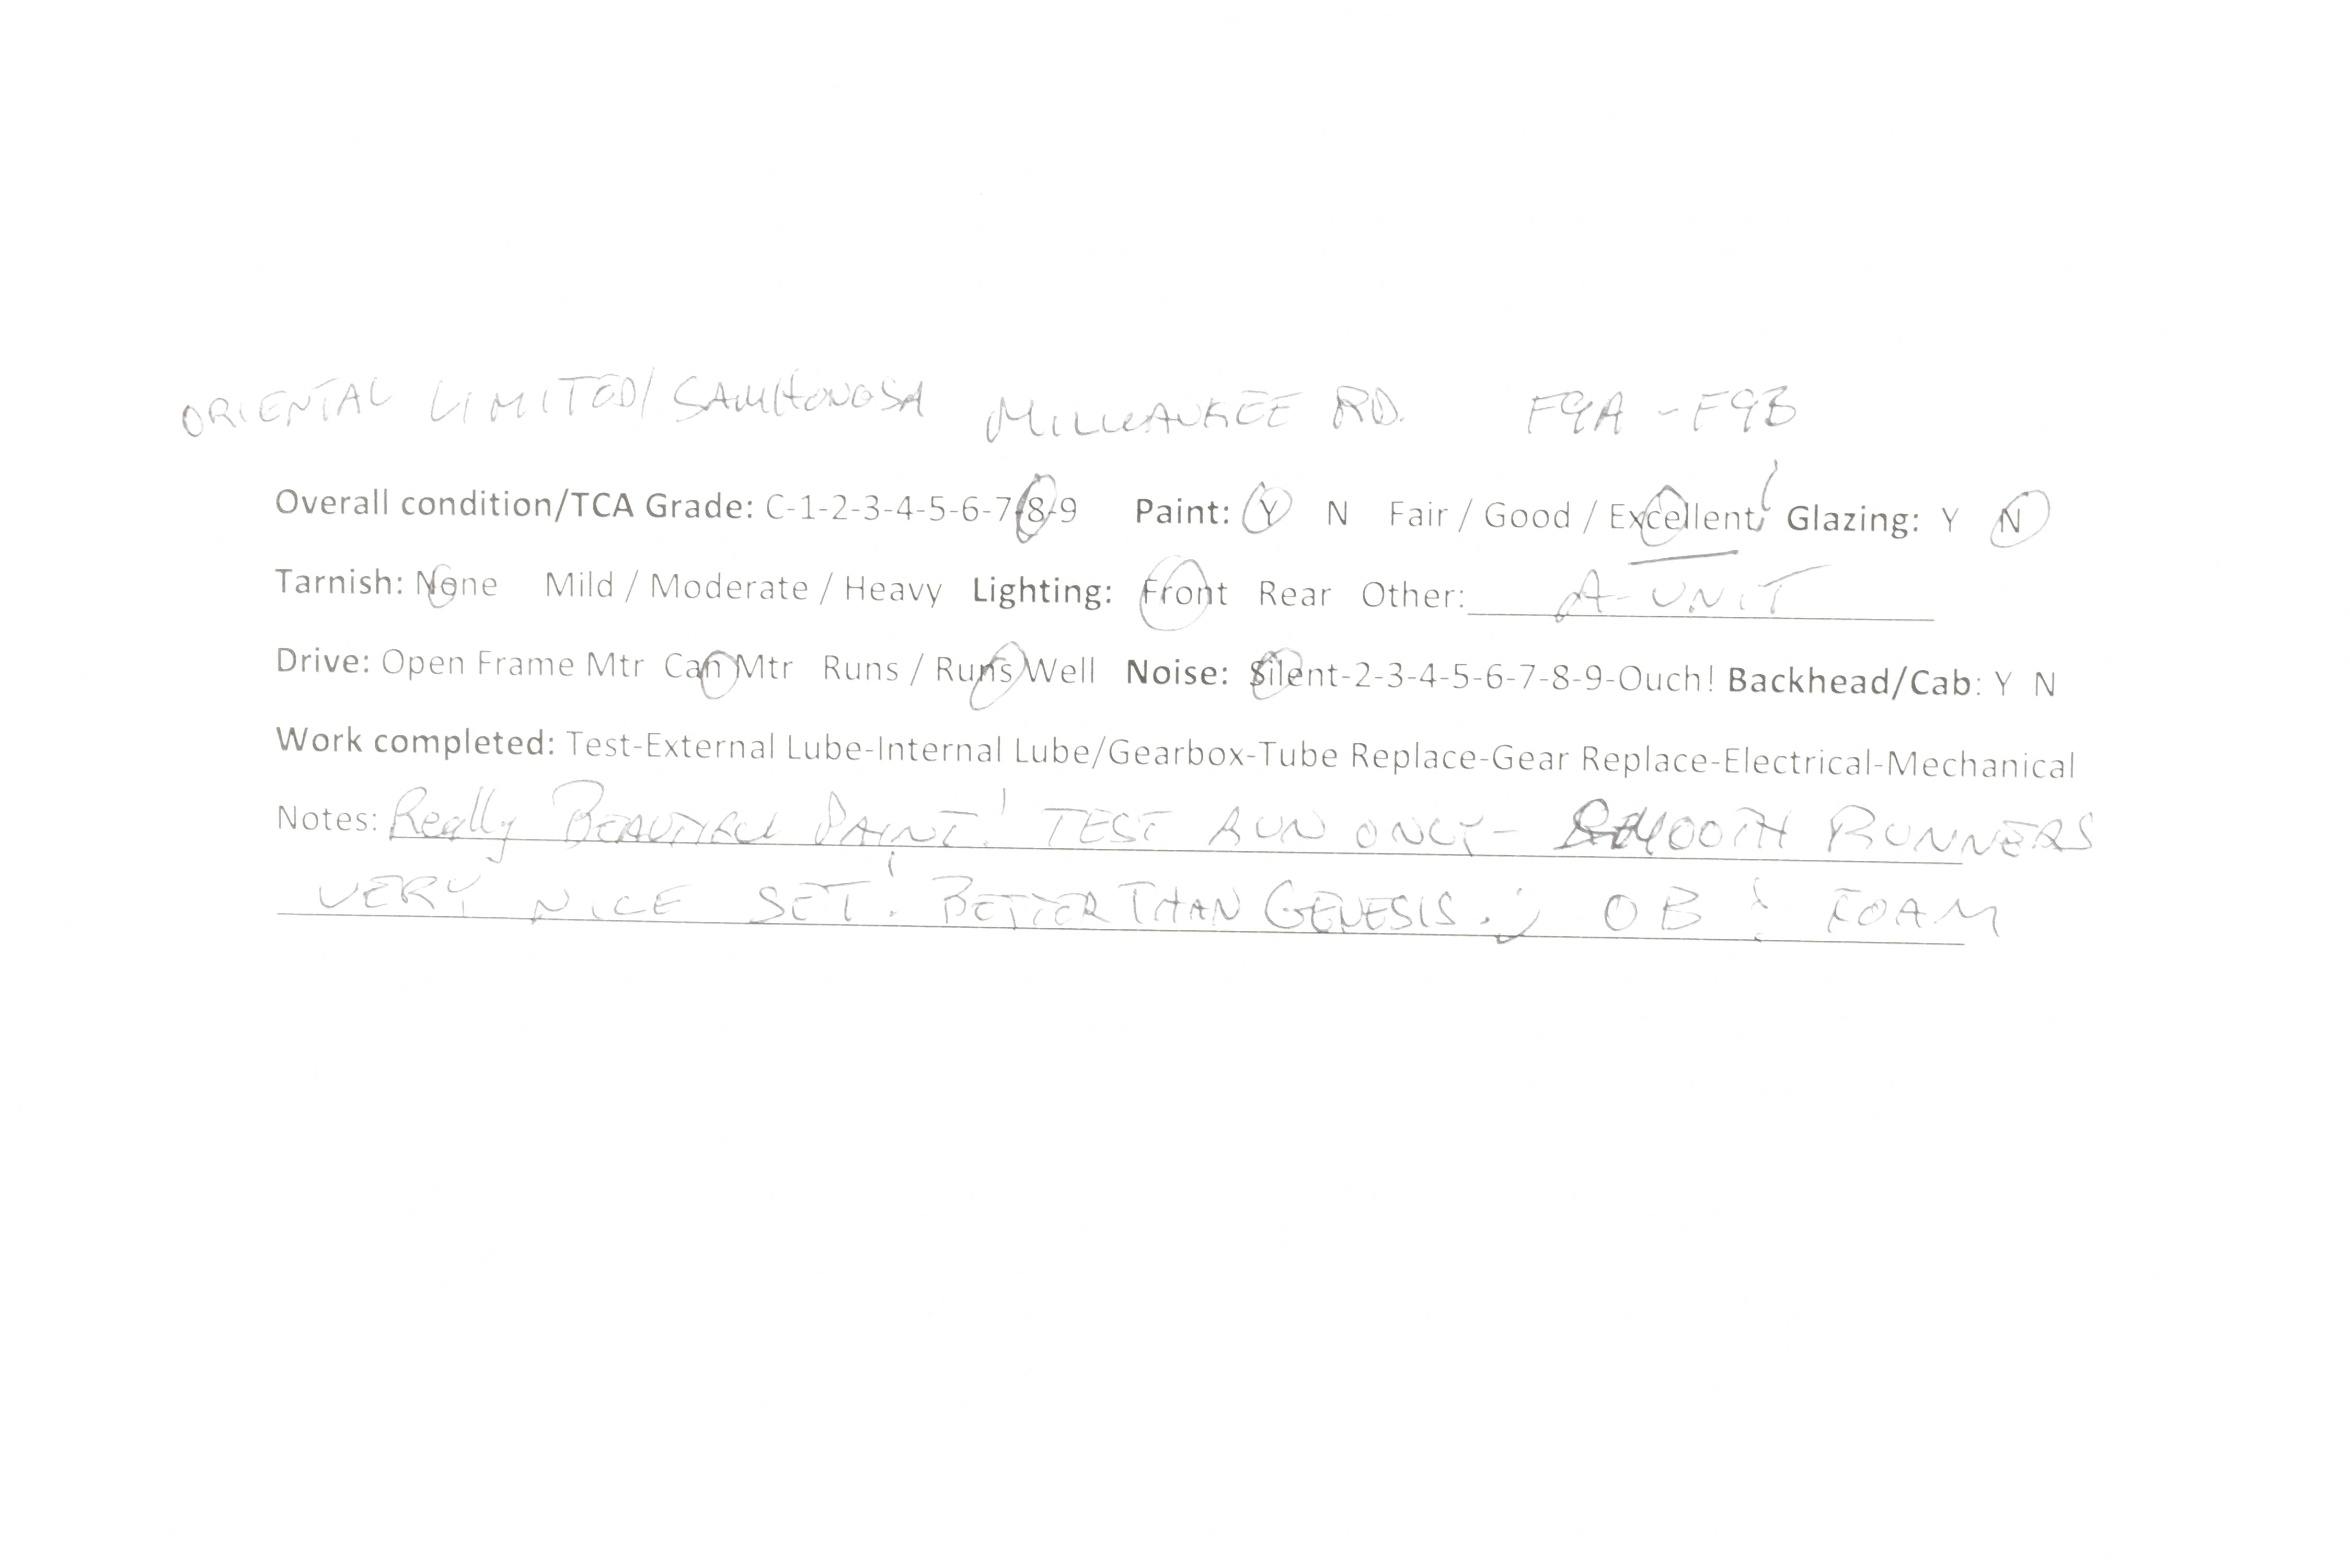 ORIENTAL LIMITED/SAMHONGSA MILWAUKEE RD. F9A - F9B
Overall condition/TCA Grade: C-1-2-3-4-5-6-7-8-9 Paint: Y N Fair / Good / Excellent! Glazing: Y N
Tarnish: None Mild / Moderate / Heavy Lighting: Front Rear Other: A-UNIT
Drive: Open Frame Mtr Can Mtr Runs / Runs Well Noise: Silent-2-3-4-5-6-7-8-9-Ouch! Backhead/Cab: Y N
Work completed: Test-External Lube-Internal Lube/Gearbox-Tube Replace-Gear Replace-Electrical-Mechanical
Notes: Really BEAUTIFUL PAINT! TEST RUN ONLY- SMOOTH RUNNERS
VERY NICE SET! BETTER THAN GENESIS. ;) OB & FOAM